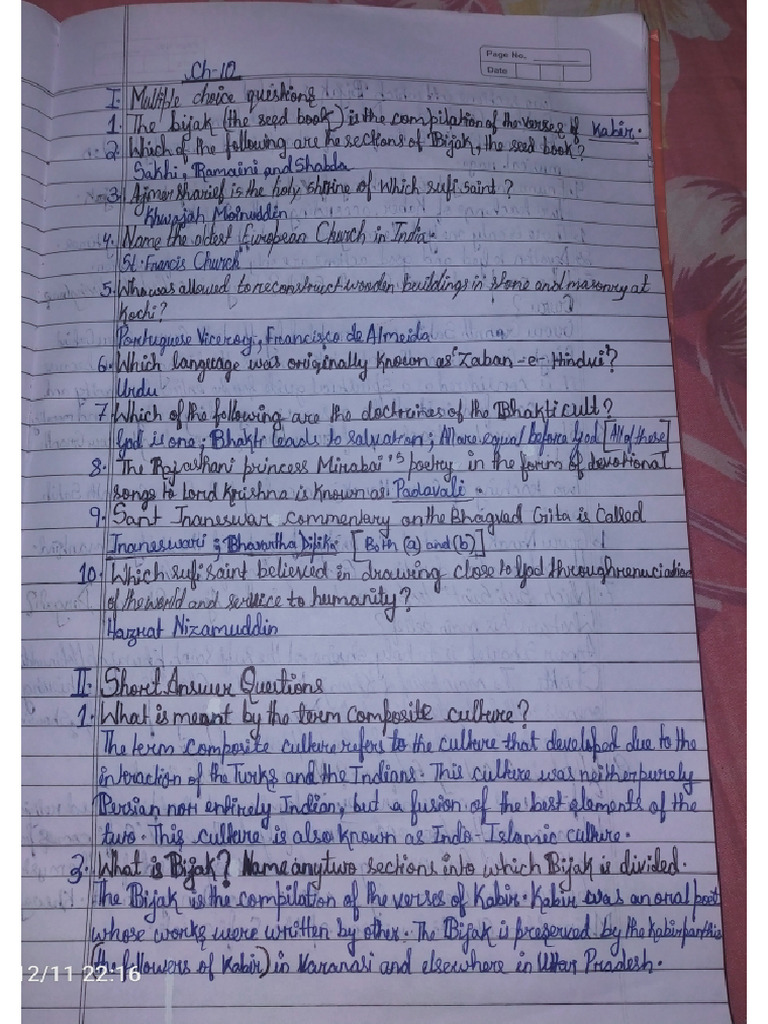 Page No.
Date
Ch-10
I. Multiple choice questions
1. The bijak (the seed book) is the compilation of the verses of Kabir.
2. Which of the following are the sections of Bijak, the seed book?
Sakhi, Ramaini and Shabda
3. Ajmer Sharief is the holy shrine of which sufi saint?
Khwajah Moinuddin
4. Name the oldest European Church in India.
St. Francis Church
5. Who was allowed to reconstruct wooden buildings in stone and masonry at
Kochi?
Portuguese Viceroy, Francisco de Almeida
6. Which language was originally known as 'Zaban-e-Hindui'?
Urdu
7. Which of the following are the doctrines of the Bhakti cult?
God is one; Bhakti leads to salvation; All are equal before God [All of these]
8. The Rajasthani princess Mirabai's poetry in the form of devotional
songs to Lord Krishna is known as Padavali.
9. Sant Jnaneswar commentary on the Bhagvad Gita is called
Jnaneswari; Bhavartha Dipika [Both (a) and (b)]
10. Which sufi saint believed in drawing close to God through renuciation
of the world and service to humanity?
Hazrat Nizamuddin
II. Short Answer Questions
1. What is meant by the term composite culture?
The term composite culture refers to the culture that developed due to the
interaction of the Turks and the Indians. This culture was neither purely
Persian nor entirely Indian, but a fusion of the best elements of the
two. This culture is also known as Indo-Islamic culture.
3. What is Bijak? Name any two sections into which Bijak is divided.
The Bijak is the compilation of the verses of Kabir. Kabir was an oral poet
whose works were written by other. The Bijak is preserved by the Kabirpanthis
(the followers of Kabir) in Varanasi and elsewhere in Uttar Pradesh.
12/11 22:16